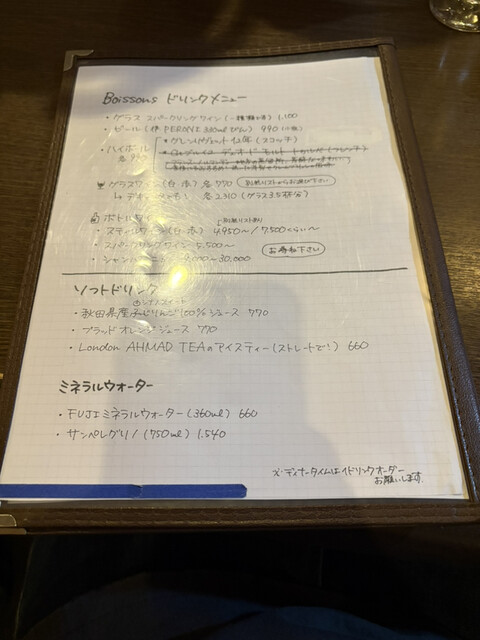 Boissons ドリンクメニュー
・グラス スパークリングワイン 1,100
・ビール (伊 PERONI 330ml ビン) 990
・ハイボール
・グレンリヴェット 12年 (スコッチ)
各 990
グラスワイン (白・赤) 各 770 別紙リストからお選び下さい
各 2,310 (グラス3.5杯分)
ボトルワイン ↓別紙リスト有り
・スティルワイン (白・赤) 4,950〜/7,500くらい〜
・スパークリングワイン 5,500〜 お尋ね下さい
・シャンパーニュ 〜30,000
ソフトドリンク
・秋田県産ふじりんご 100% ジュース 770
・ブラッドオレンジジュース 770
・London AHMAD TEAのアイスティー (ストレートで!) 660
ミネラルウォーター
・FUJIミネラルウォーター (360ml) 660
・サンペレグリノ (750ml) 1,540
※ディナータイムは1ドリンクオーダー
お願いします。